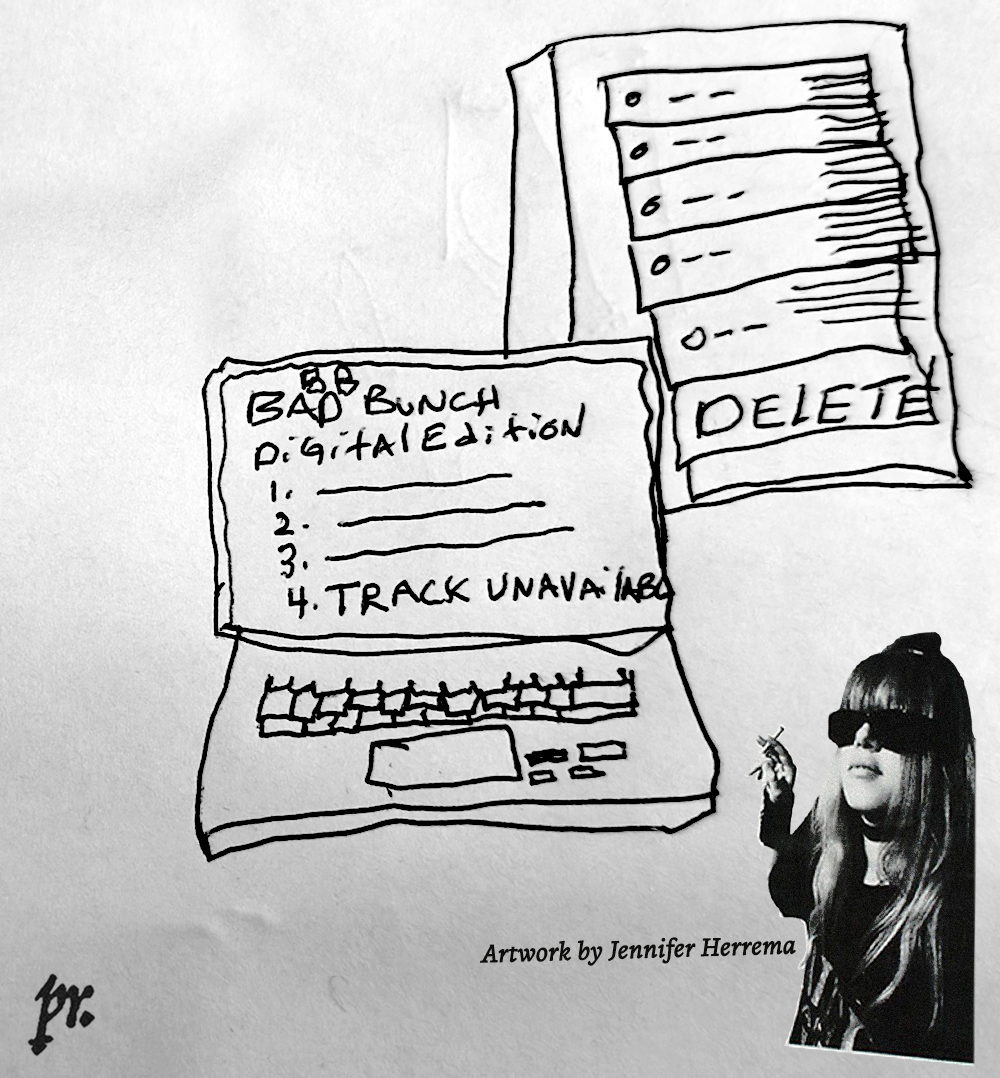 DELETE
BB
BAD BUNCH
DiGitAl Edition
1.
2.
3.
4. TRACK UNAVAilABL
Artwork by Jennifer Herrema
pr.